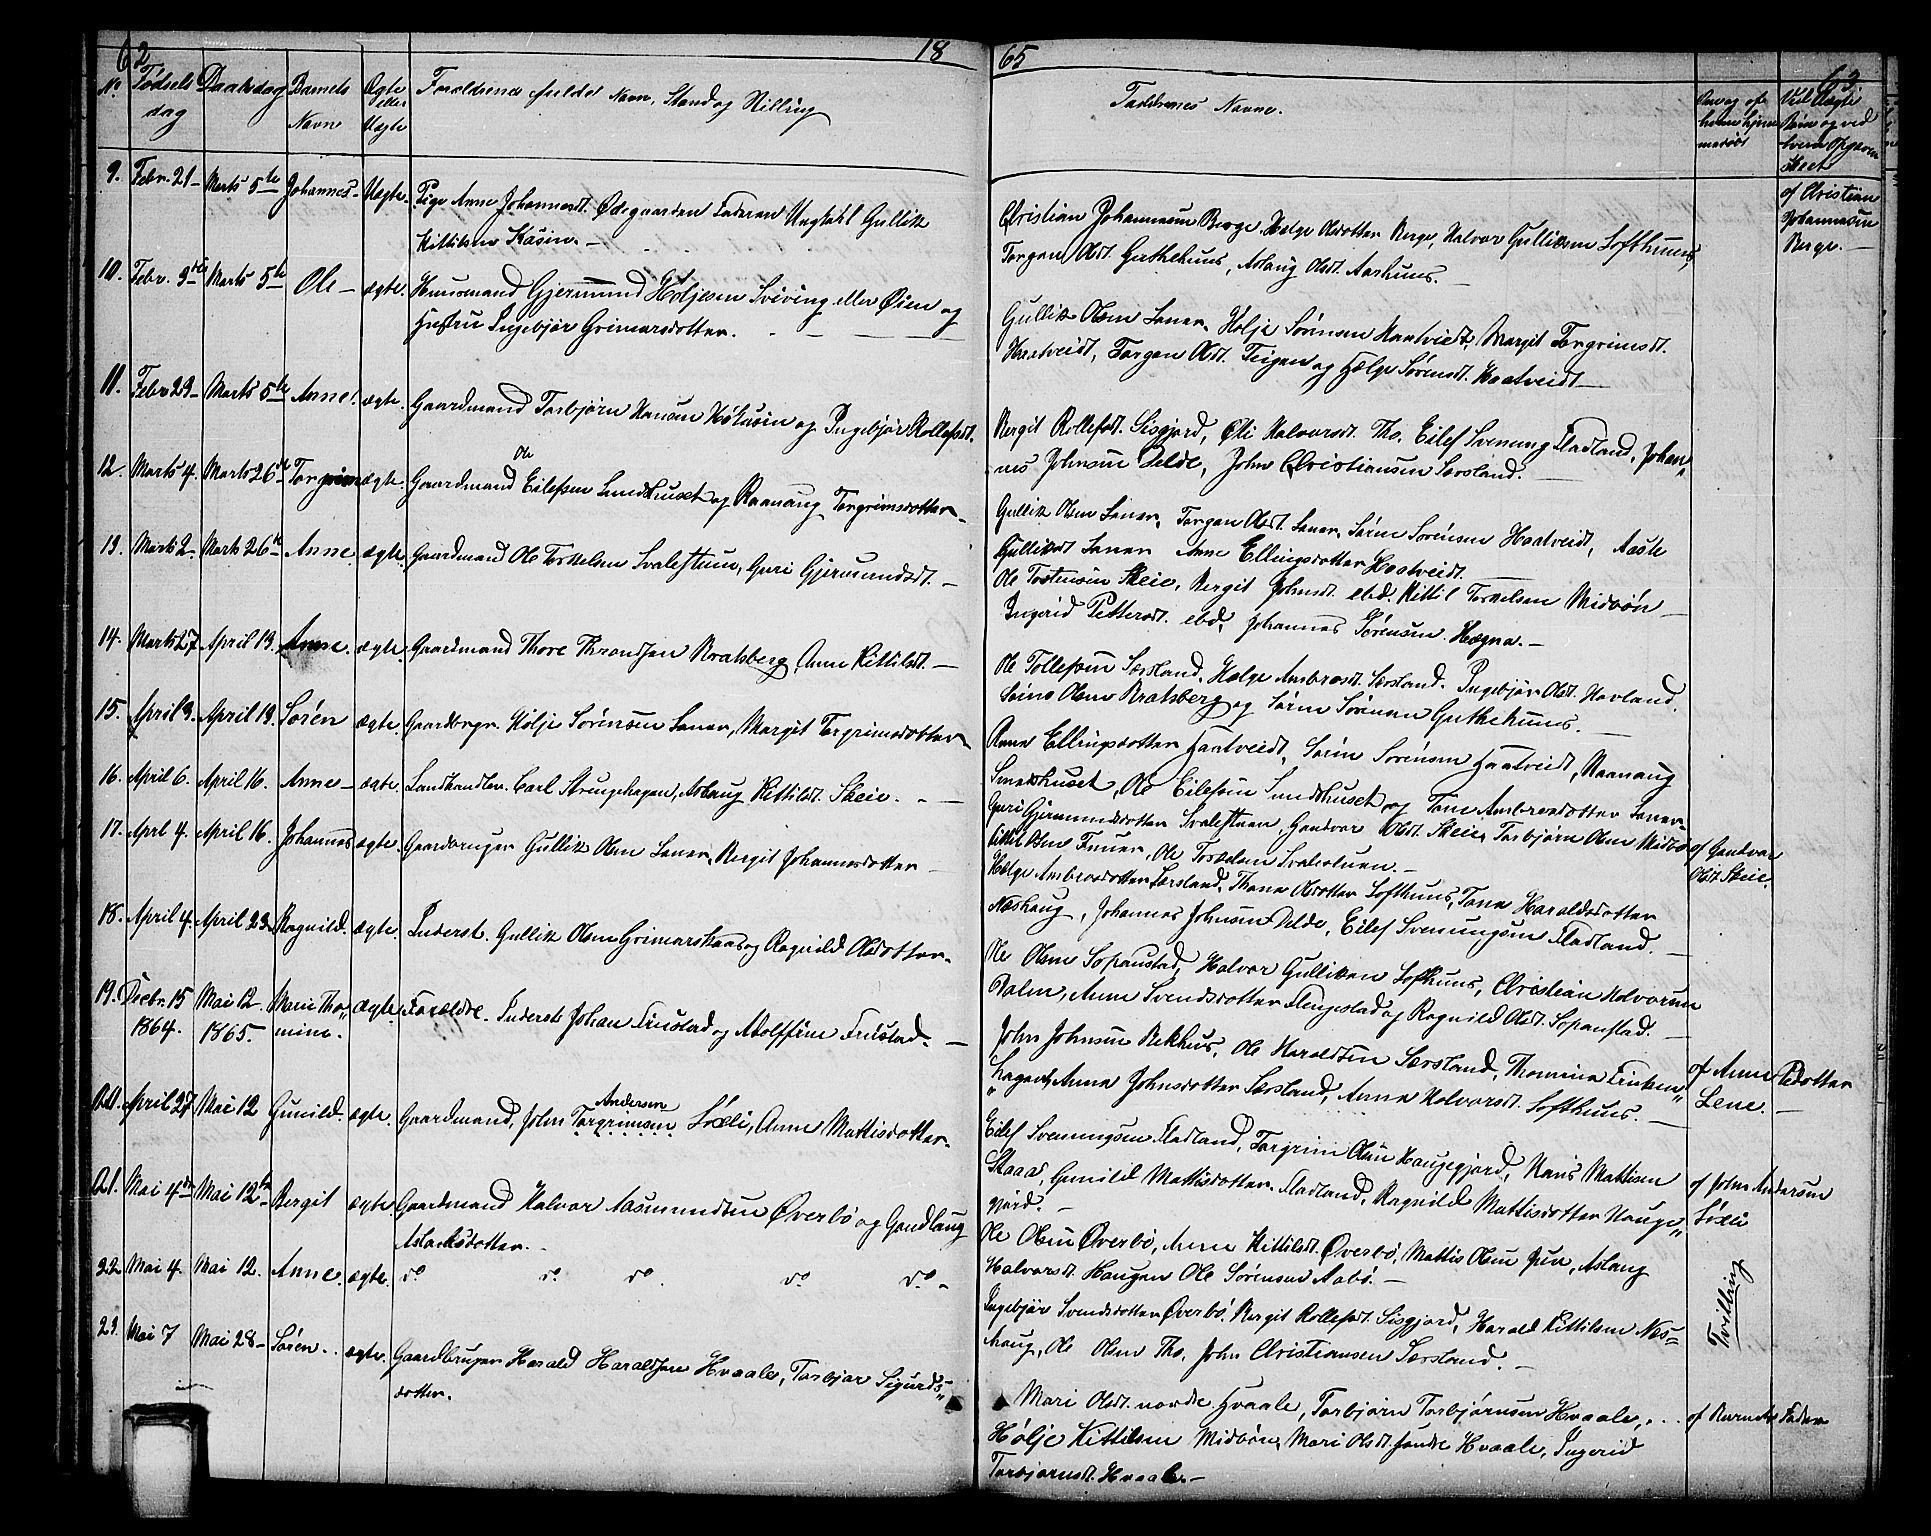 62
18
65
63
No
Fødsels
dag
Daabsdag
Barnets
Navn
Ægte
eller
Uægte
Forældrenes fulde Navn, Stand og Stilling
Faddernes Navne.
9. Febr. 21 – Marts 5te Johannes – Uægte. Pige Anne Johannesdt. Ødegaarden Faderen Ungkarl Gullik
Kittilsen Kaasin. –
Christian Johannesen Berge, Helge Olsdotter Berge, Halvor Gulliksen Lofthuus,
Torgon Olsdt. Guthehuus, Aslaug Olsdt. Aarhuus. –
af Christian
Johannesen
Berge. –
10. Febr. 3die Marts 5te Ole – ægte. Huusmand Gjermund Høljesen Sviving eller Øien og
Hustru Ingebjør Grimarsdotter. –
Gullik Olsen Laner, Hølje Sørensen Haatveidt, Margit Torgrimsdt.
Haatveidt, Torgon Olsdt. Teigen og Helge Sørensdt. Haatveidt –
11. Febr. 23 – Marts 5te Anne. ægte. Gaardmand Torbjørn Hansen Høkasin og Ingebjør Rollefsdt.
Bergit Rollefsdt. Sisgjord, Øli Halvorsdt. Tho, Eilef Svenung Fladland, Johan„
nes Johnsen Delde, John Christiansen Særsland. –
12. Marts 4. Marts 26de Torgrim ægte. Gaardmand Ole Eilefsen Sundhuset og Raanaug Torgrimsdotter –
Gullik Olsen Laner, Torgon Olsdt. Laner, Søren Sørensen Haatveidt, Aaste
Gulliksdt Laner Anne Ellingsdotter Haatveidt. –
13. Marts 2 – Marts 26de Anne. ægte. Gaardmand Ole Torkelsen Svalestuen, Guri Gjermundsdt. –
Ole Tostensen Skeie, Bergit Johnsdt. ebd. Kittil Torkelsen Midbøn –
Ingerid Pettersdt. ebd, Johannes Sørensen Hægna. –
14. Marts 27 April 13. Anne. ægte. Gaardmand Thore Throndsen Bratsberg, Anne Kittilsdt. –
Ole Tollefsen Særsland, Helge Ambrosdt. Særsland. Ingebjør Olsdt. Havland.
Søine Olsen Bratsberg og Søren Sørensen Guthehuus. –
15. April 3. April 13. Søren ægte. Gaardbrgr. Hølje Sørensen Laner, Margit Torgrimsdotter –
Anne Ellingsdotter Haatveidt, Søren Sørensen Haatveidt, Raanaug
Sundshuset, Ole Eilefsen Sundshuset og Tone Ambrosdotter Laner –
16. April 6. April 16. Anne – ægte. Landhandler. Carl Strugehagen, Aslaug Kittilsdt. Skeie. –
Guri Gjermundsdotter Svalestuen, Gundvor Olsdt. Skeie, Torbjørn Olsen Midbø
Kittil Olsen Fuuer, Ole Torkelsen Svalestuen. –
af Gundvor
Olsdt. Skeie.
17. Aprl 4. April 16. Johannes ægte. Gaardbruger Gullik Olsen Laner, Bergit Johannesdotter –
Helge Ambrosdotter Særsland, Thone Olsdotter Lofthuus, Tone Haraldsdotter
Næshaug, Johannes Johnsen Delde, Eilef Svenungsen Fladland. –
18. April 4. April 23. Ragnild. ægte. Inderst. Gullik Olsen Grimarskaas og Ragnild Olsdotter.
Ole Olsen Sopanstad, Halvor Gulliksen Lofthuus, Christian Halvorsen
Dalen, Anne Svendsdotter Flengstad og Ragnild Olsdt. Sopanstad. –
19. Decbr. 15 Mai 12. Maren Tho„ ægte. Forældre. Inderst Johan Friestad og Adolffine Friestad. –
1864. 1865. mine.
John Johnsen Rekhus, Ole Haraldsen Særsland, Thomine Eriksen„
hagen, Anne Johnsdotter Særsland, Anne Halvorsdt. Lofthuus. –
af Anne Pedotter
Lene –
20. April 27 Mai 12 Gunild. ægte. Gaardmand, John Torgrimsen Andersen Lixli, Anne Mattisdotter.
Eilef Svenungsen Fladland, Torgrim Olsen Haugegjord, Hans Mattisen
Staas, Gunild Mattisdotter. Fladland, Ragnild Mattisdotter Hauge„
gjord. –
af John Andersen
Lixli
21. Mai 4de Mai 12te Bergit ægte. Gaardmand Halvor Aasmundsen Øverbø og Gundlaug
Aslaksdotter. –
Ole Olsen Øverbø, Anne Kittilsdt. Øverbø, Mattis Olsen Juve, Aslaug
Halvorsdt. Haugen Ole Sørensen Aabø. –
22 Mai 4. Mai 12. Anne. ægte. do do do do do –
Ingebjør Svendsdotter Øverbø, Bergit Rollefsdt. Sisgjord, Harald Kittilsen Næs=
haug, Ole Olsen Tho, John Christiansen Særsland. –
Tvilling
23. Mai 7 Mai 28 – Søren. ægte. Gaardbruger Harald Haraldsen Hvaale, Torbjør Sigurds„
dotter.
Mari Olsdt. nordre Hvaale, Torbjørn Torbjørnsen Hvaale,
Hølje Kittilsen Midbøn, Mari Olsdt. søndre Hvaale, Ingerid
Torbjørnsdt. Hvaale. –
af Barnets Fader